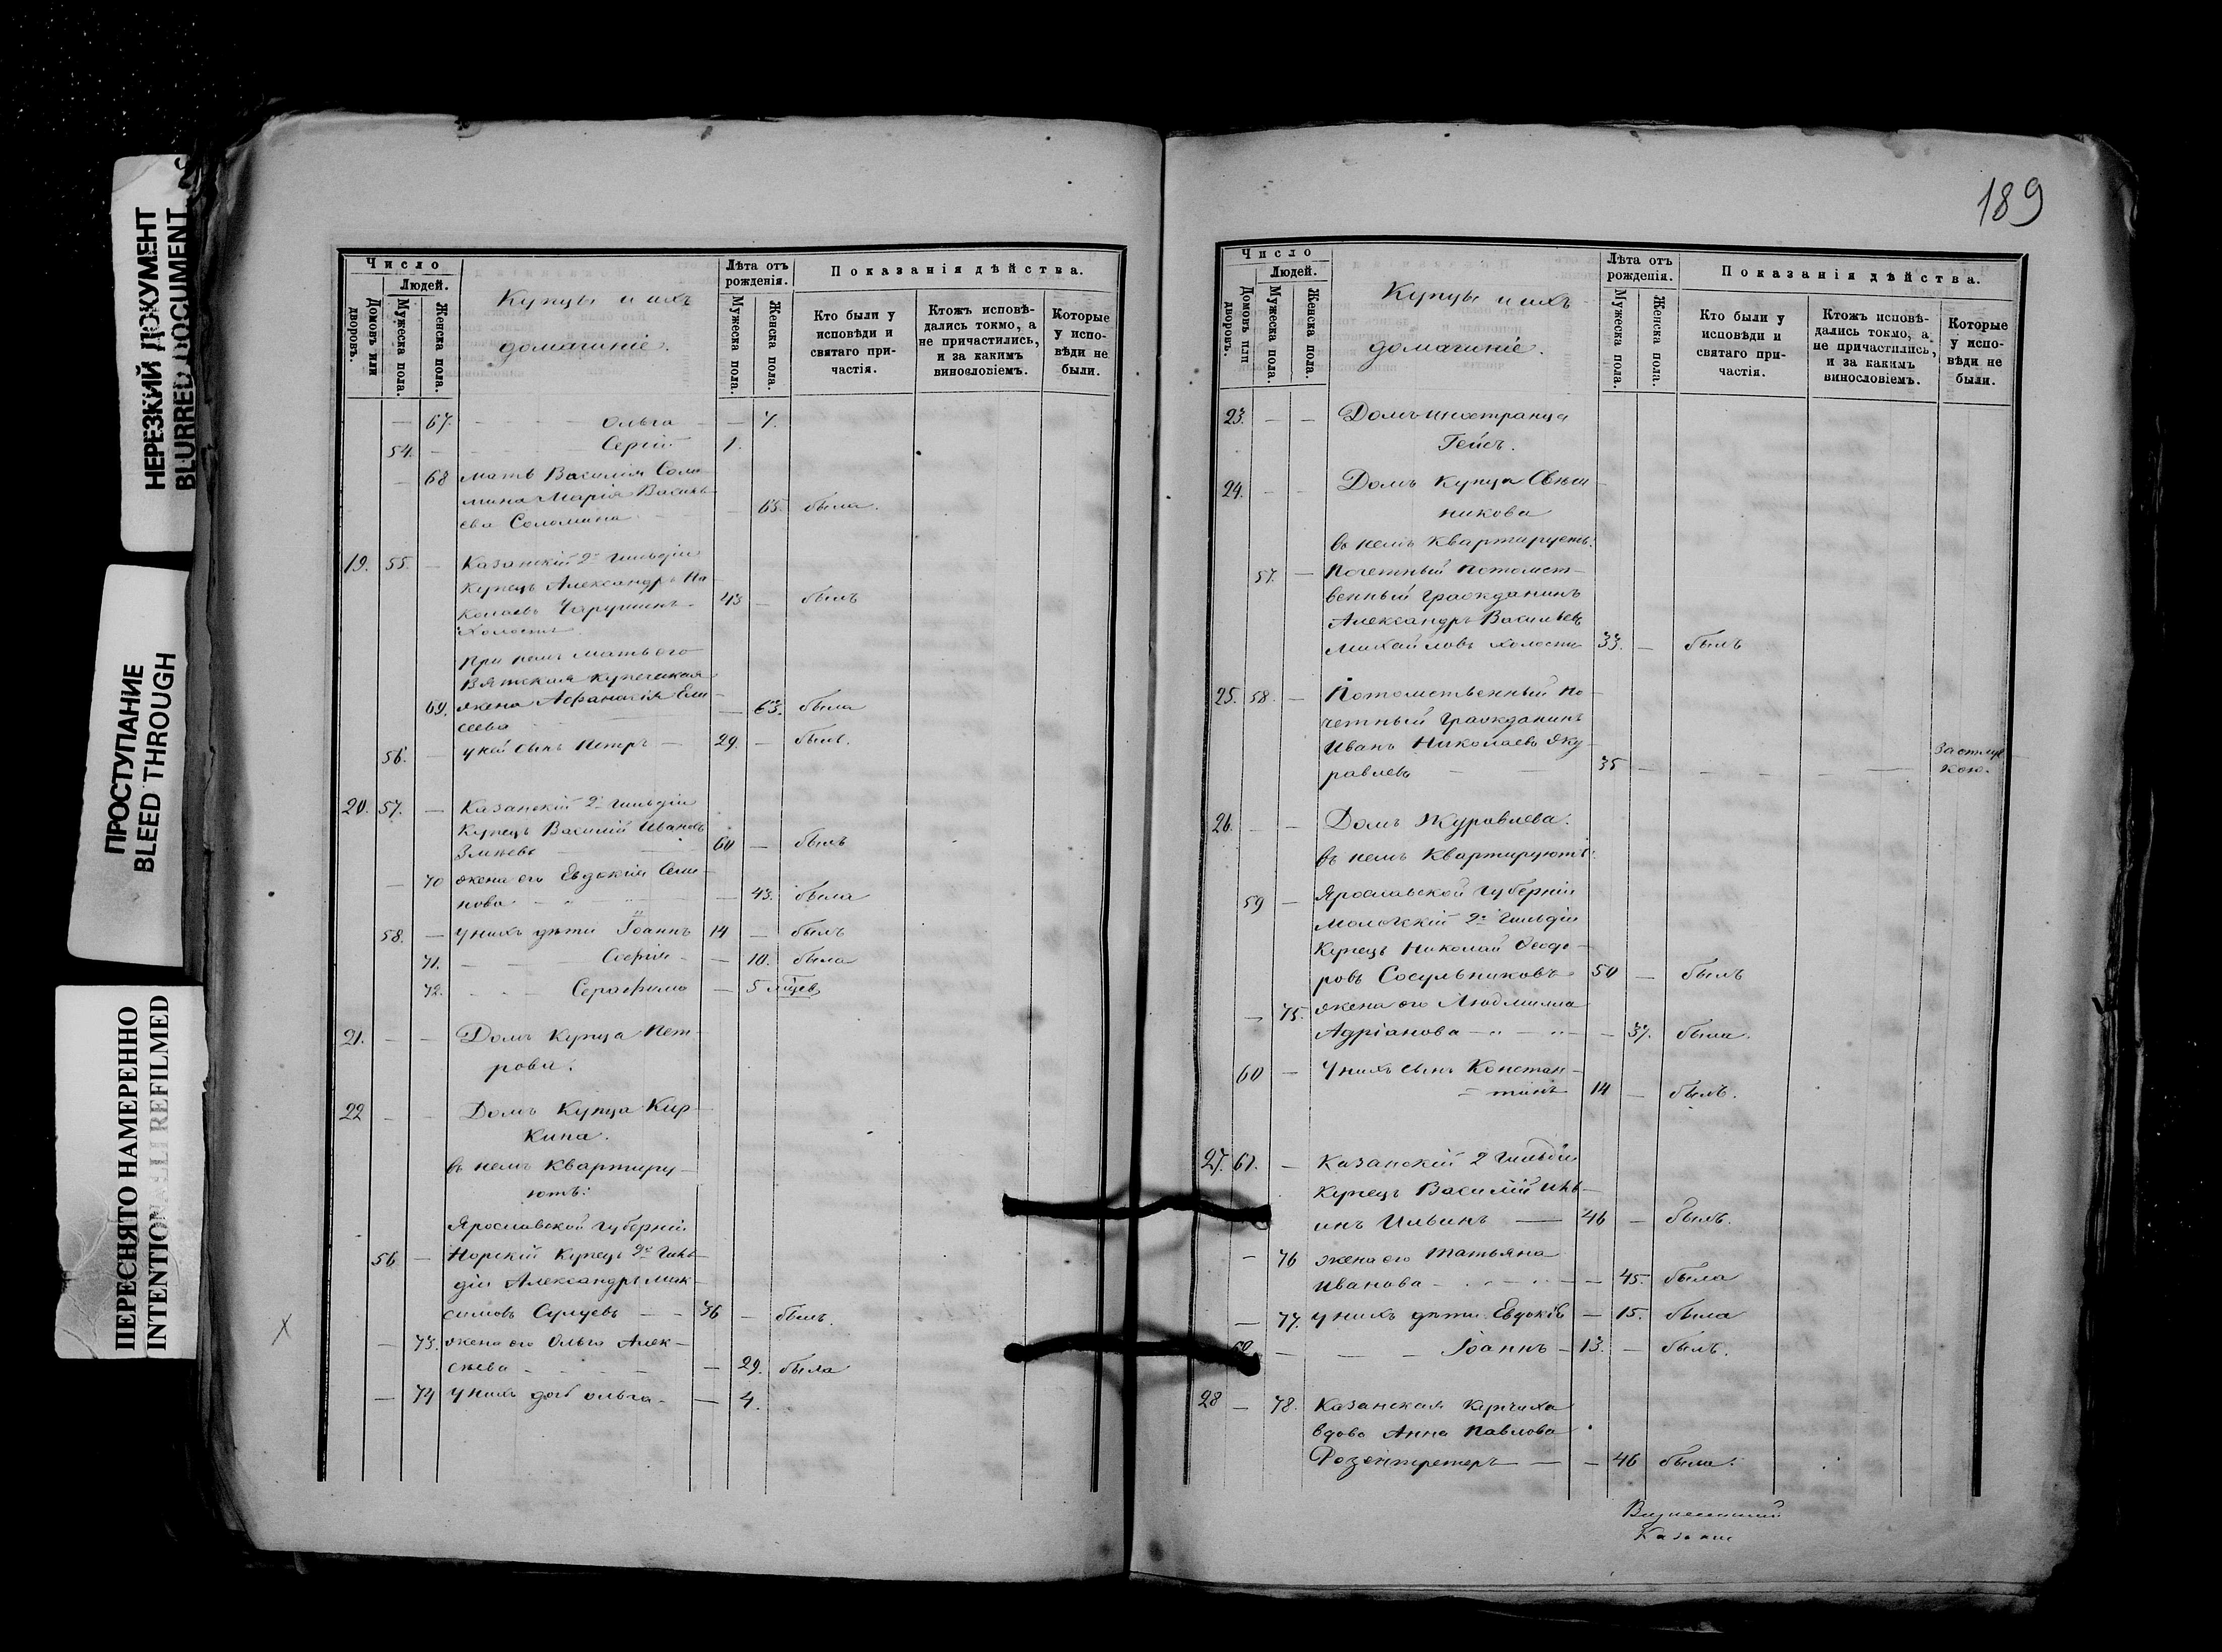 НЕРЕЗКИЙ ДОКУМЕНТ
BLURRED DOCUMENT
ПРОСТУПАНИЕ
BLEED THROUGH
ПЕРЕСНЯТО НАМЕРЕННО
INTENTIONALLY REFILMED
Число
Людей.
Домовъ или дворовъ.
Мужеска пола.
Женска пола.
Купцы и ихъ
домашніе.
Лѣта отъ рожденія.
Мужеска пола
Женска пола.
Показанія дѣйства.
Кто были у исповѣди и святаго причастія.
Ктожъ исповѣдались токмо, а не причастились, и за какимъ винословіемъ.
Которые у исповѣди не были.
— 67. Ольга — 7.
54. — Сергій 1.
— 68 мать Василія Соло
мина Марія Василь
ева Соломина — 65. была.
19. 55. — Казанскій 2й гильдіи
Купецъ Александръ Ни
колаевъ Чарушинъ 43 — былъ
Холостъ
При немъ мать его
Вятская купеческая
69. жена Афанасія Ели
сеева — 63. была
56. — у ней сынъ Петръ — 29. — былъ.
20. 57. — Казанскій 2й гильдіи
Купецъ Василій Ивановъ
Змѣевъ 60 — былъ
— 70 жена его Евдокія Семе
нова — 43. была
58. — у нихъ дѣти Іоаннъ 14 — былъ
71. — Софія — 10. была
72. Серафима — 5
21. — — Домъ Купца Пет
рова.
22 — — Домъ Купца Кир
кина.
въ немъ квартиру
ютъ:
Ярославской губерніи
56 — Норскій Купецъ 2й гиль
діи Александръ Мак
симовъ Сурцевъ — 36 — былъ.
— 73. жена его Ольга Алек
сѣева — 29. была
— 74 у нихъ дочь Ольга — 4.
X
189
Число
Людей.
Домовъ или дворовъ.
Мужеска пола.
Женска пола.
Купцы и ихъ
домашніе.
Лѣта отъ рожденія.
Мужеска пола.
Женска пола.
Показанія дѣйства.
Кто были у исповѣди и святаго причастія.
Ктожъ исповѣдались токмо, а не причастились, и за какимъ винословіемъ.
Которые у исповѣди не были.
23. — — Домъ иностранца
Гейсъ.
24. — — Домъ Купца Свѣш
никова
въ немъ квартируетъ:
57. — Почетный потомст
венный гражданинъ
Александръ Васильевъ
Михайловъ холостъ 33. — былъ
25. 58. — Потомственный по
четный гражданинъ
Иванъ Николаевъ Жу
равлевъ 35 —
26. — — Домъ Журавлева.
въ немъ квартируютъ:
59 — Ярославской губерніи
Моложскій 2й гильдіи
Купецъ Николай Ѳеодо
ровъ Сосульниковъ 50 — былъ
— 75. жена его Людмилла
Адріанова — 37. была.
60 — У нихъ сынъ Констан
тинъ 14 — былъ.
27. 61. — Казанскій 2 гильдіи
Купецъ Василій Иль
инъ Ильинъ — 46 — былъ.
— 76 жена его Татьяна
Иванова — 45. была
— 77. у нихъ дѣти Евдокія — 15. была
62. — Іоаннъ — 13. — былъ.
28 — 78. Казанская купчиха
вдова Анна Павлова
Розентретеръ — 46 была.